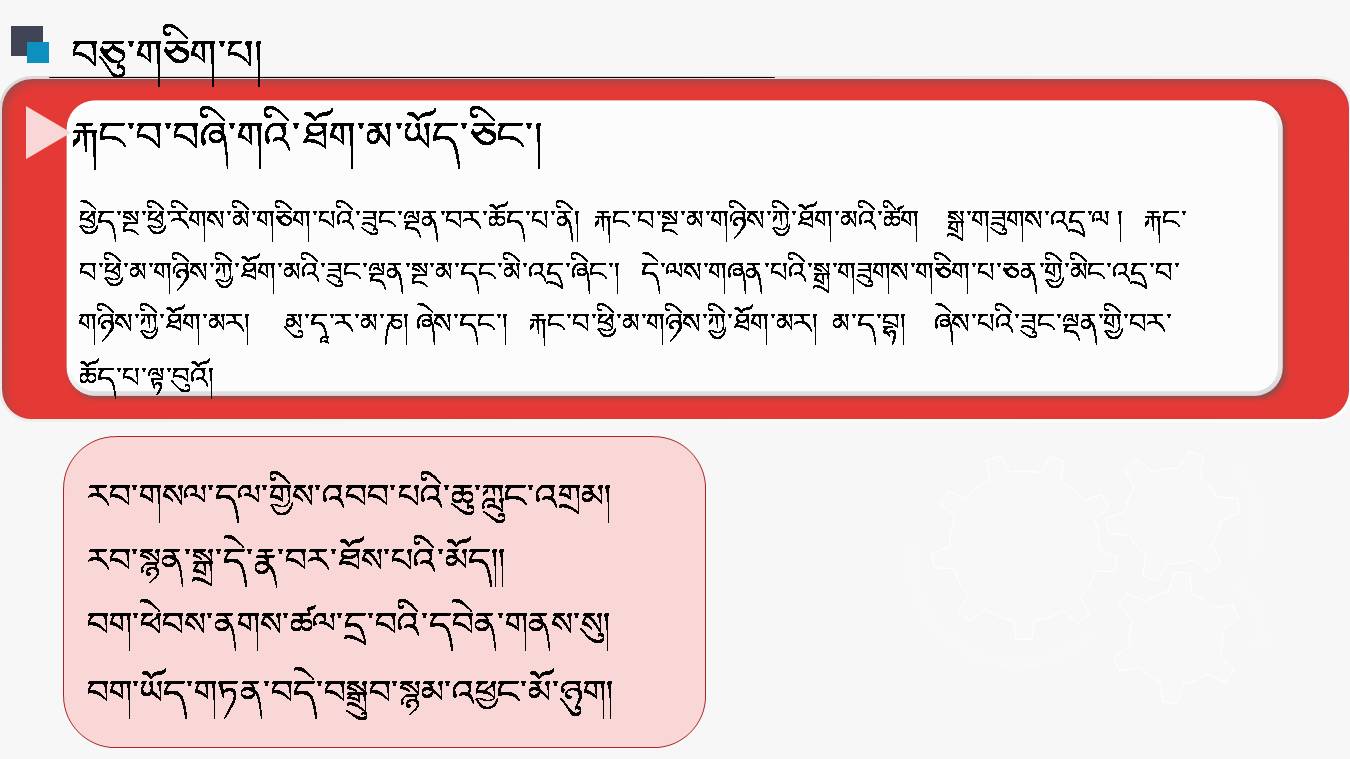 བཅུ་གཅིག་པ།
རྐང་བ་བཞི་གའི་ཐོག་མ་ཡོད་ཅིང་།
ཕྱེད་སྔ་ཕྱི་རིགས་མི་གཅིག་པའི་ཟུང་ལྡན་བར་ཆོད་པ་ནི། རྐང་བ་སྔ་མ་གཉིས་ཀྱི་ཐོག་མའི་ཚིག སྒྲ་གཟུགས་འདྲ་ལ ། རྐང་
བ་ཕྱི་མ་གཉིས་ཀྱི་ཐོག་མའི་ཟུང་ལྡན་སྔ་མ་དང་མི་འདྲ་ཞིང་། དེ་ལས་གཞན་པའི་སྒྲ་གཟུགས་གཅིག་པ་ཅན་གྱི་མིང་འདྲ་བ་
གཉིས་ཀྱི་ཐོག་མར། མུ་དཱ་ར་མ་ཎ། ཞེས་དང་། རྐང་བ་ཕྱི་མ་གཉིས་ཀྱི་ཐོག་མར། མ་ད་བྷྲ། ཞེས་པའི་ཟུང་ལྡན་གྱི་བར་
ཆོད་པ་ལྟ་བུའོ།
རབ་གསལ་དལ་གྱིས་འབབ་པའི་ཆུ་ཀླུང་འགྲམ།
རབ་སྙན་སྒྲ་དེ་རྣ་བར་ཐོས་པའི་མོད།།
བག་ཕེབས་ནགས་ཚལ་དྲ་བའི་དབེན་གནས་སུ།
བག་ཡོད་གཏན་བདེ་བསྒྲུབ་སྙམ་འཕྱང་མོ་ཉུག།